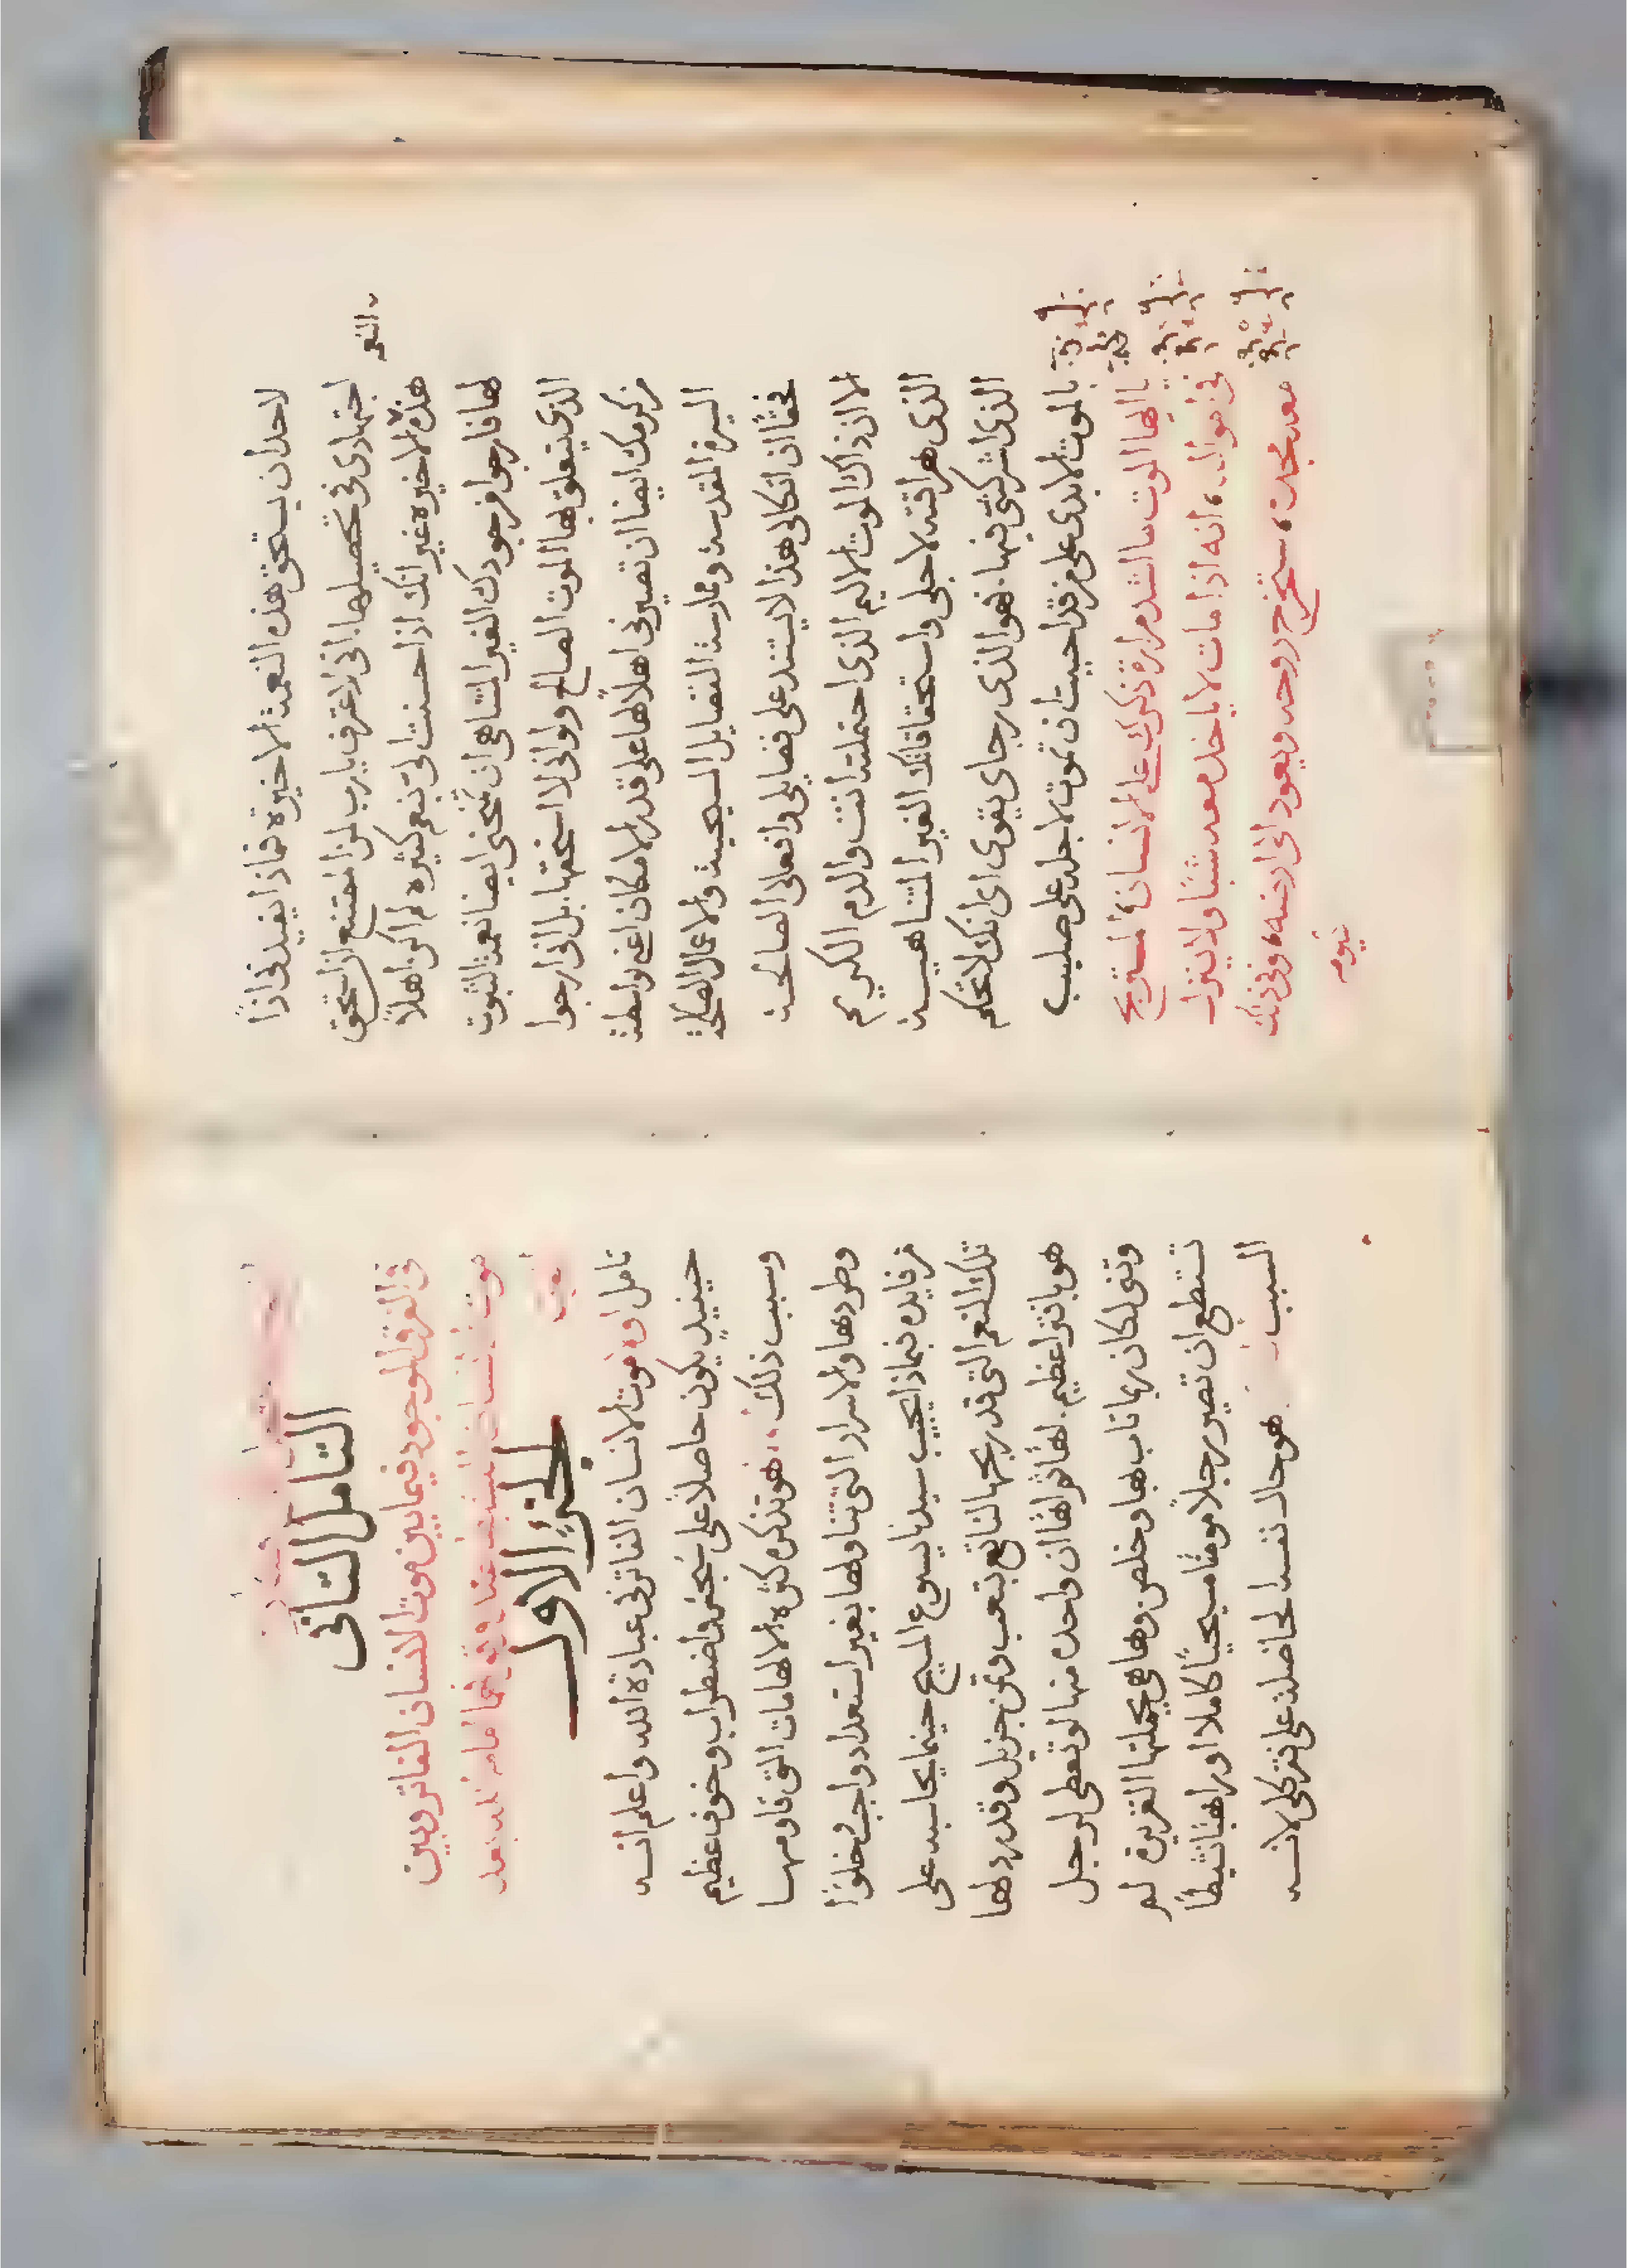 لاحد ان يستحق هذه النعمة الاخيرة فماذا يفيدني اذًا
اجتهادى فى تحصيلها. انى لاعترف يارب لمن المقتنع ان استحق
النعم
هذه الاخيره غير انك اذا احسنت الىّ بنعم كثيره لم اكن اهلاً
لها فارجوا من جودك الغير المتناهى ان تمنحنى ايضا نعمة الثبوت
الذى يتعلق بها الموت الصالح ولوانى لا استحقها. بل انى ارجوا
من كرمك ايضا ان تصيرنى اهلاً لها على قدر الامكان اعنى بواسطة
السيرة المقدسة وممارسة الفضايل المسيحية والاعمال الصالحة
فحقًا ان اتكالى هذا لا يستند على فضايلى وافعالى الصالحة
الا ان ذاك الموت الاليم الذى احتملته انت والدم الكريم
الذى هرقته لاجلى واستحقاقاتك الغير المتناهية
الذى اشركتنى فيها. هو الذى رجاى يتقوى اى انك لا تحكم
بالموت الابدى على من قد احببت ان تموت لاجله على صليب
يا ايها الموت ما اشد مرارة ذكرك على الانسان المستريح
فى امواله، انه اذا مات لا ياخذ معه شيئًا ولا ينزل
معه مجده، ستخرج روحه ويعود الى ارضه، وفى ذلك
يومه
التامل الثانى
فى الفرق الموجود فيما بين موت الانسان الفاتر وبين
موت الانسان
الجزء الاول
تامل اولا موت الانسان الفاتر فى عبادة الله واعلم انه
حينيذٍ يكون حاصلاً على سجس واضطراب وخوف عظيم
وسبب ذلك، هو تذكره كثرة الالهامات التى قاومها
وطردها والاسرار التى تناولها بغير استعداد واجب وخلوًا
من فايده فبماذا يجيب سيدنا يسوع المسيح حينما يحاسبه على
تلك النعم التى قد ربحها لنا بتعب وثمن جزيل وقد رذلها
هو باثم عظيم. لعل واحده منها لو تعطى لرجل
وثنى لكان ربما تاب بها وخلص وها هى بجملتها الغزيرة لم
تستطع ان تصير رجلاً مومنًا مسيحيًا كاملا او راهبًا نشيطًا
السبب هو حال نفسه الحاضلة على فتر كلى لانه